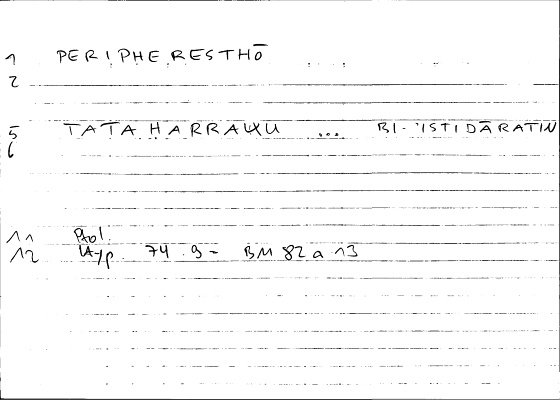 1 PERIPHERESTHŌ
2
5 TATAḤARRAKU ... BI-'ISTIDĀRATIN
6
11 Ptol.
12 Hyp. 74 9 - BM 82 a 13